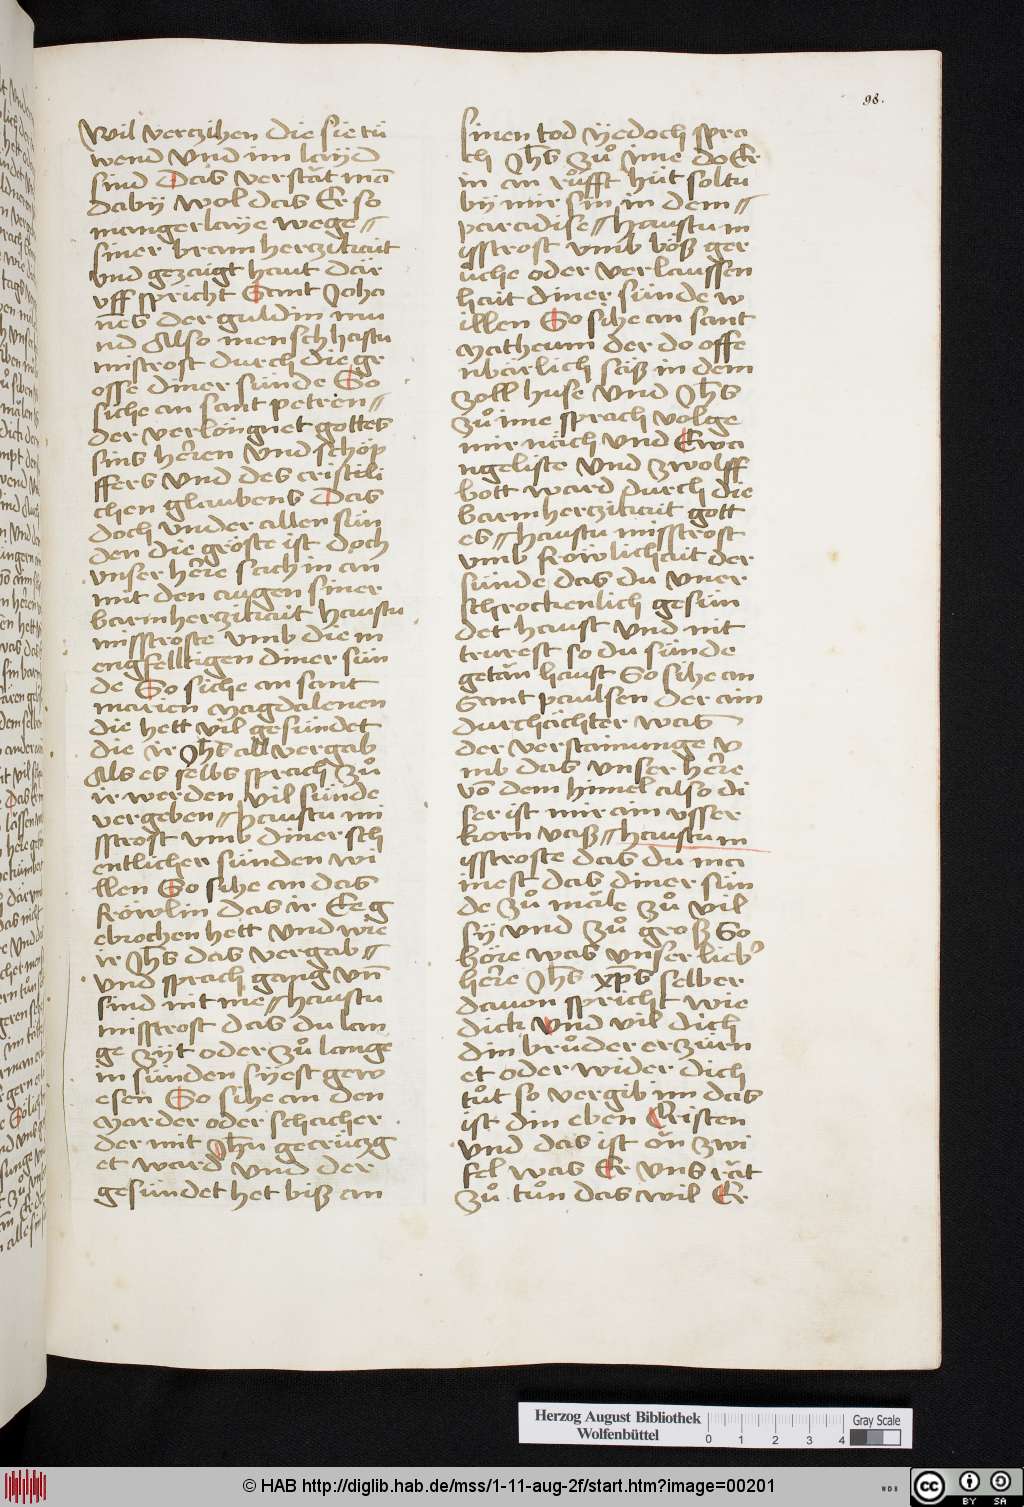 98.
wil verzihen die sie tů
wend vnd im layd
sind Das verstăt mā
daby wol das Er so
mangerlaye wege //
siner bramherczikait
vnd gezaigt haut dār
vff spricht Sant Joha
nes der guldin mu
nd Also mensch hastu
mistrost durch die gr
osse diner sünde So
siche an sant petren //
der verlöngnet gottes
sins herren vnd schöp
ffers vnd des cristili
chen glaubens Das
doch vnder allen sün
den die gröste ist doch
vnser herre sach in an
mit den augen siner
barmherczikait haustu
misstroste vmb die m
engfelltigen diner sün
de So siche an sant
marien magdalenen
die hett vil gesündet
die ir Jhs all vergab
Als es selbs sprach zů
ir werden vil sünde
vergeben // haustu mi
sstrost vmb diner sch
entlicher sünden wi
llen So sihe an das
fröwlin das ir Ee g
ebrochen hett vnd wie
ir Jhs das vergab //
vnd sprach gang vn̄
sind nit me // haustu
misstrost das du lan
ge zyt oder zů lange
in sünden syest gew
esen So sihe an den
Morder oder schacher
der mit Jhū gecrüczg
et ward vnd der
gesündet het biß an
sinen tod yedoch spra
ch Jhs zů ime do Er
in an růfft hüt soltu
by mir sin in dem //
paradise // haustu m
isstrost vmb böß ger
üche oder verlaussen
hait diner sünde w
illen So sihe an sant
Matheum der do offe
nbärlich säß in dem
zoll huse vnd Jhs
zů ime sprach volge
mir näch vnd Ewa
ngeliste vnd zwolff
bott ward durch die
barmherczikait gott
es // haustu misstrost
vmb fröwlichait der
sünde das du vner
schrockenlich gesün
det haust vnd nit
trurest so du sünde
getăn haust So sihe an
Sant paulsen der ain
durchächter was
der verstainunge v
mb das vnser herre
vō dem himel also di
ser ist mir ain vsser
korn vaß // haustu m
isstroste das du ma
inest das diner sün
de zů măle zů vil
sy vnd zů groß So
höre was vnser lieb'
herre Jhs xp̄s selber
dauon spricht wie
dick vnd vil dich
din brůder erzürn
et oder wider dich
tůt so vergib im das
ist din eben Cristen
vnd das ist ăn zwi
fel was Er vns răt
zů tůn das wil Er
Herzog August Bibliothek
Wolfenbüttel
0 1 2 3 4
Gray Scale
© HAB http://diglib.hab.de/mss/1-11-aug-2f/start.htm?image=00201
WDB
cc BY SA